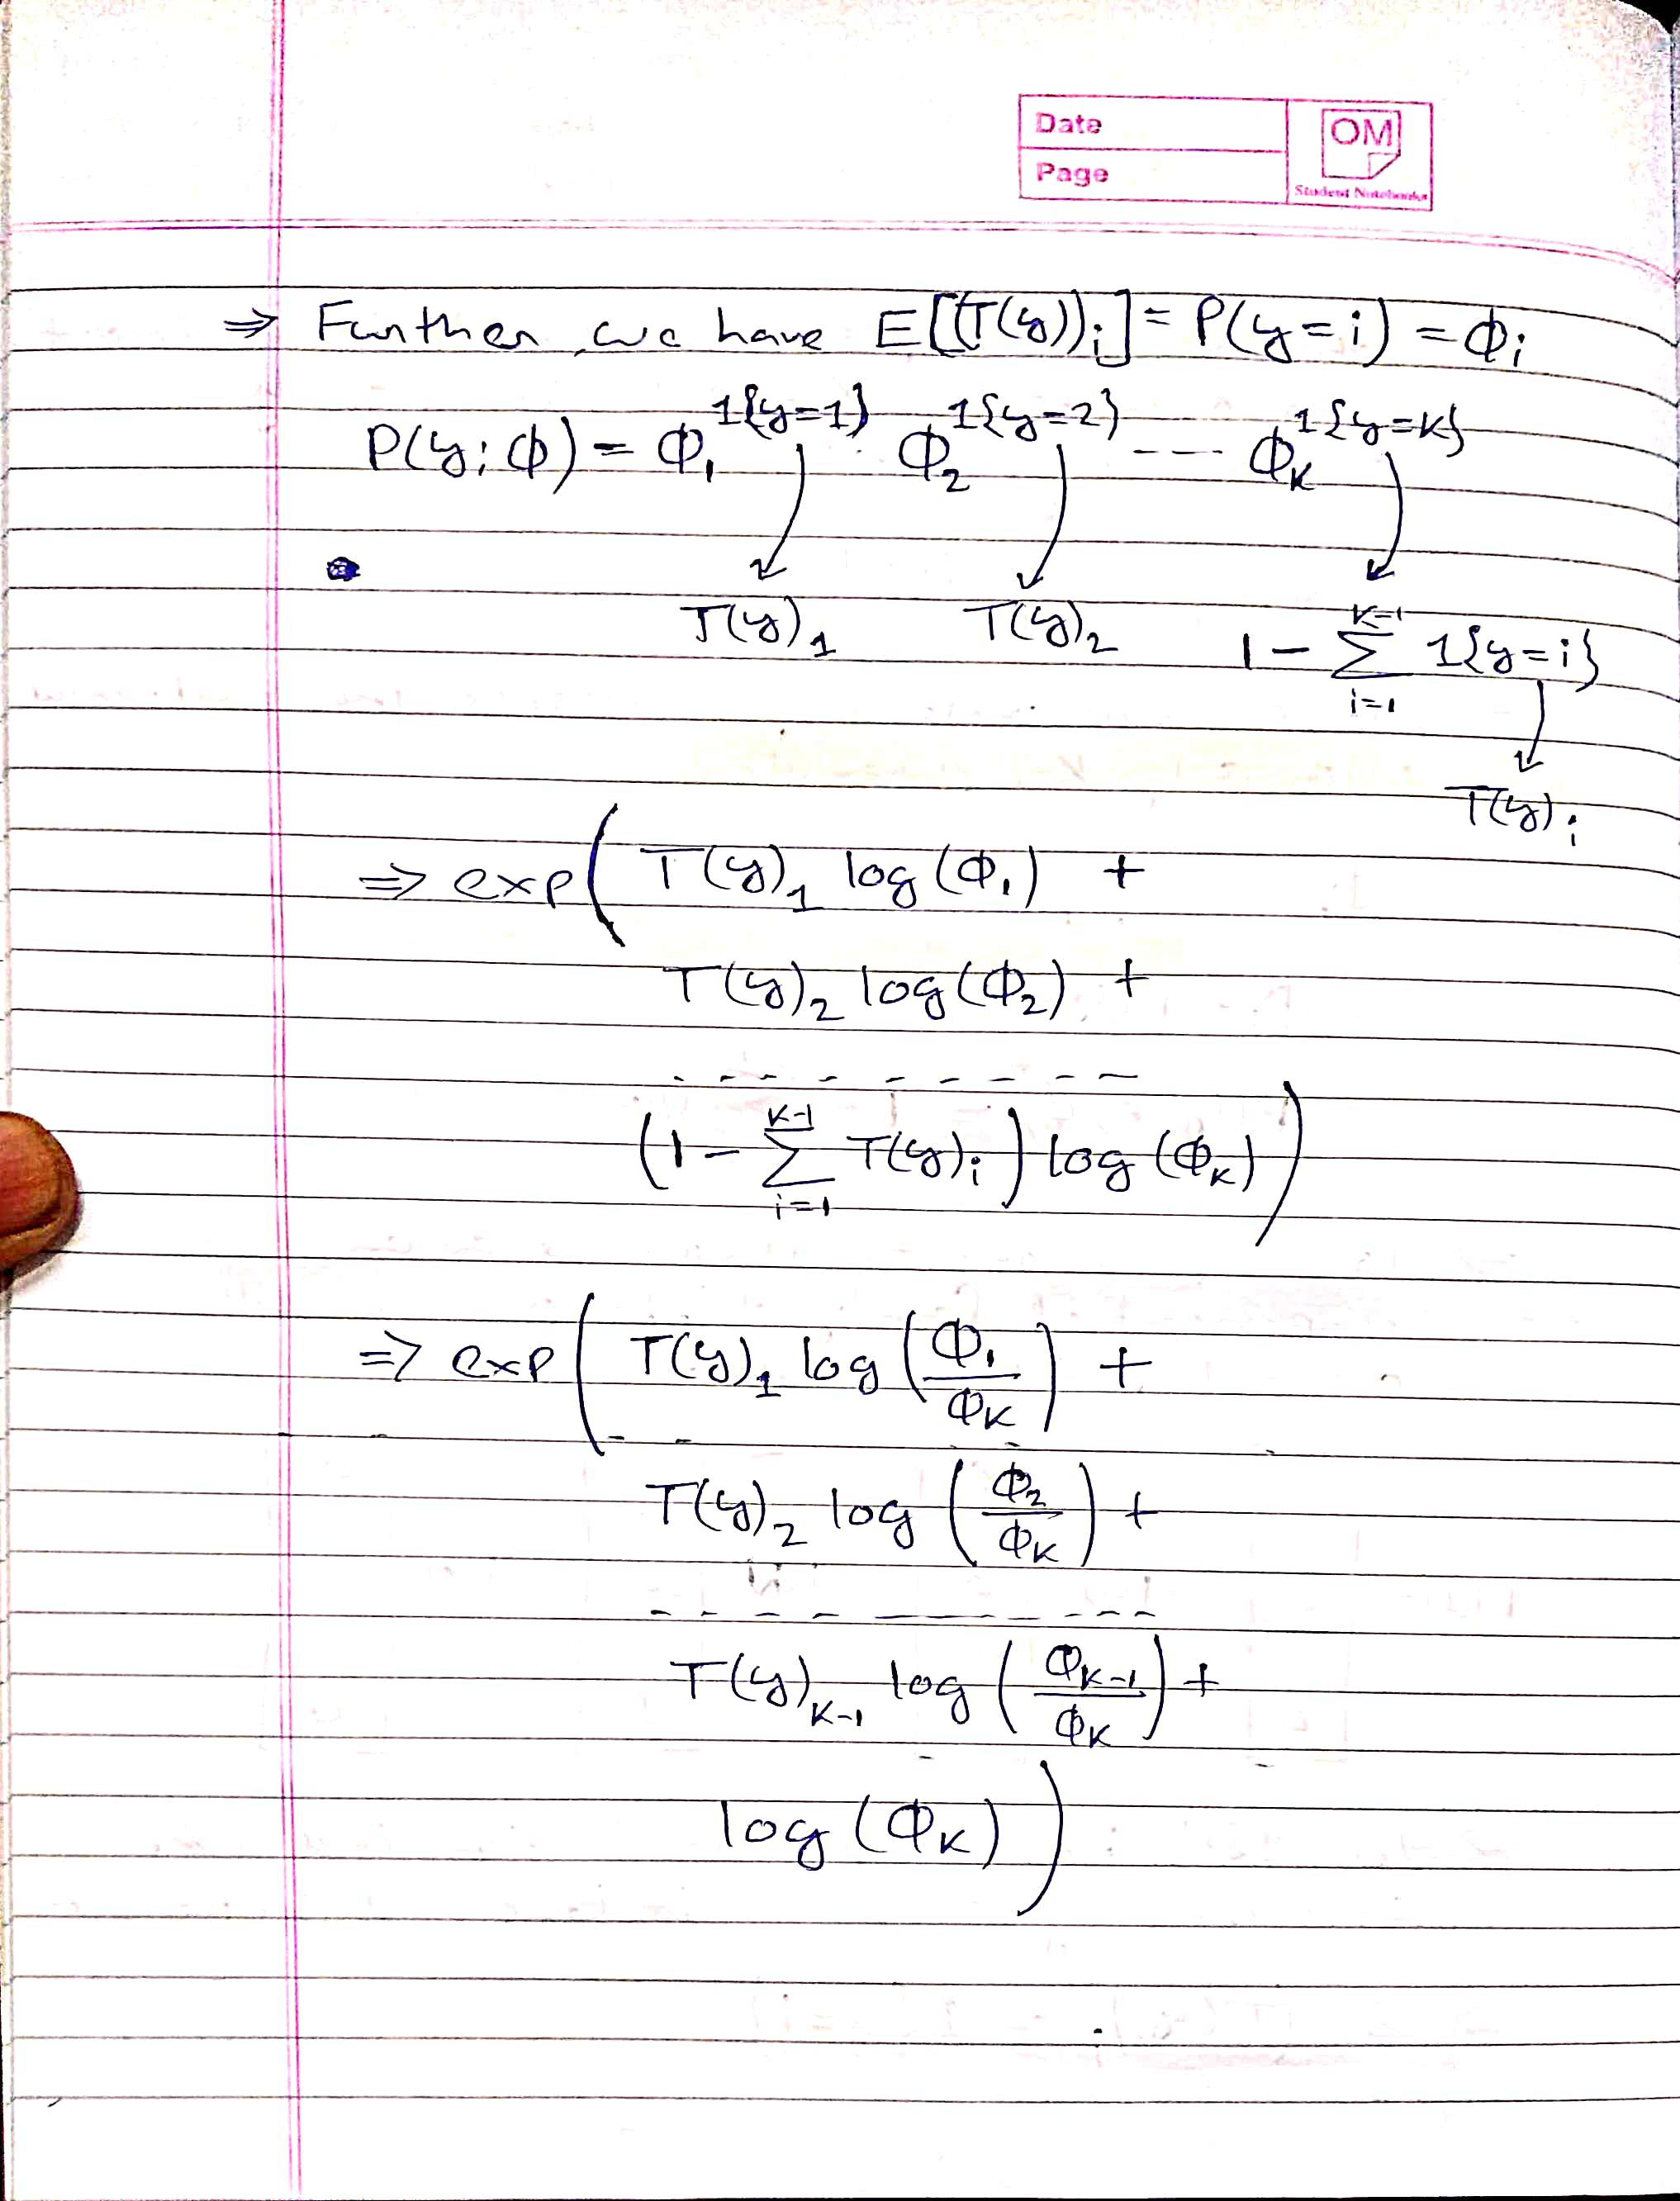 Date
Page
OM
Student Notebooks
⇒ Further, we have E[(T(y))ᵢ] = P(y=i) = Φᵢ
P(y; Φ) = Φ₁^1{y=1} · Φ₂^1{y=2} ---- Φ_K^1{y=K}
T(y)₁ T(y)₂ 1 - Σ_{i=1}^{K-1} 1{y=i}
T(y)ᵢ
⇒ exp( T(y)₁ log(Φ₁) +
T(y)₂ log(Φ₂) +
- - - - - - - - -
(1 - Σ_{i=1}^{K-1} T(y)ᵢ) log(Φ_K) )
⇒ exp( T(y)₁ log(Φ₁/Φ_K) +
T(y)₂ log(Φ₂/Φ_K) +
- - - - - - - - -
T(y)_{K-1} log(Φ_{K-1}/Φ_K) +
log(Φ_K) )